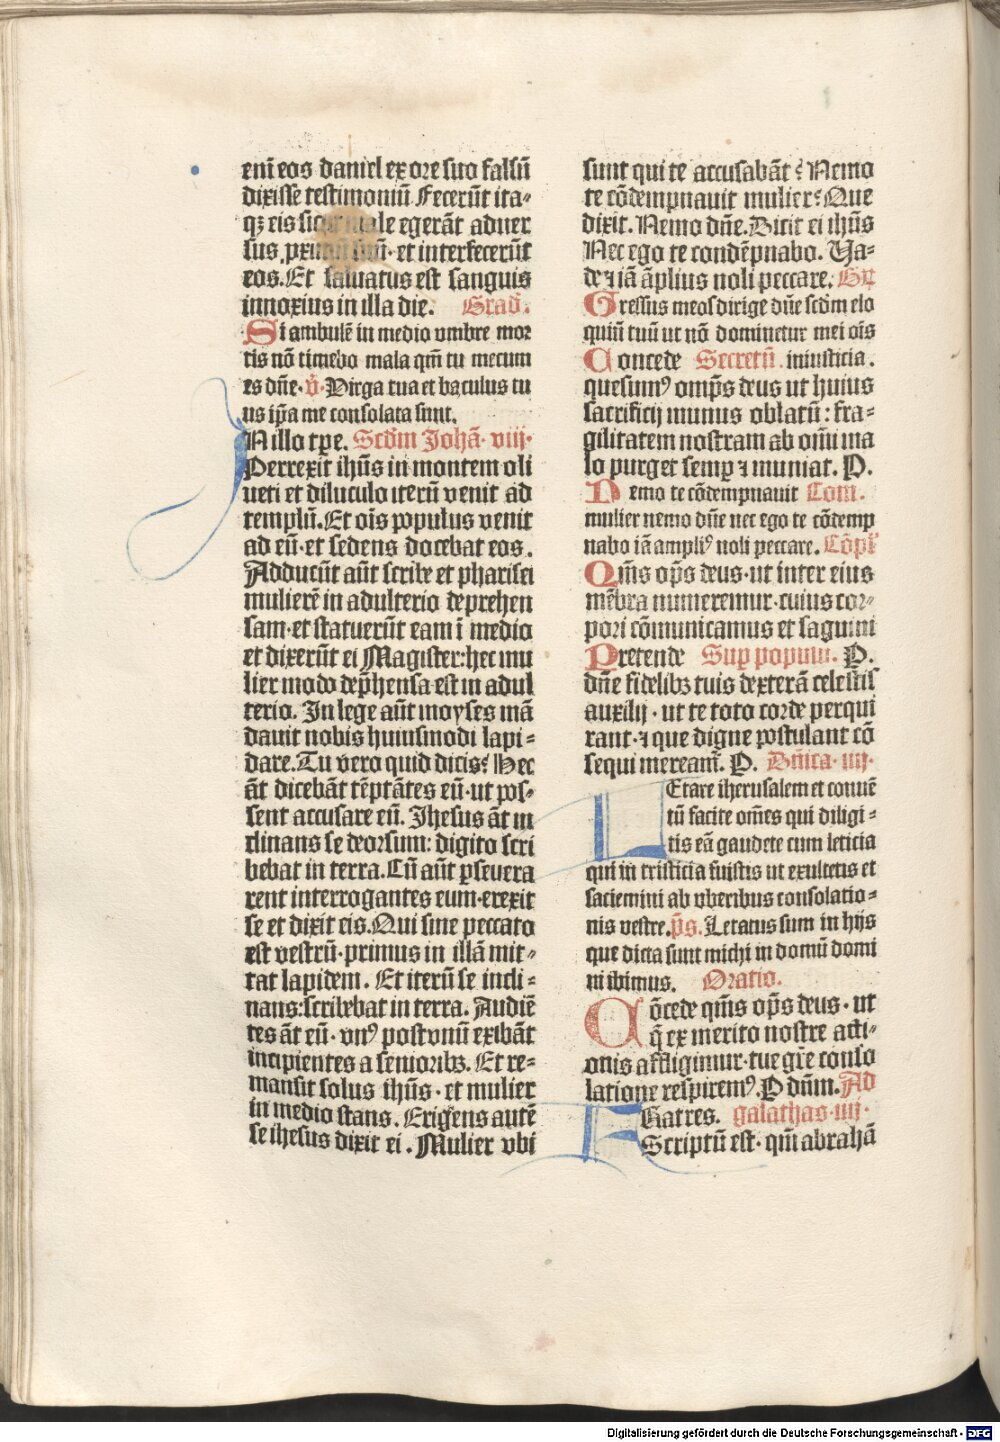 enī eos daniel ex ore suo falsū
dixisse testimoniū Fecerūt ita-
qꝫ eis sicut male egerāt aduer
sus ꝓximū suū· et interfecerūt
eos. Et saluatus est sanguis
innoxius in illa die. Grad̄.
Si ambulē in medio vmbre mor
tis nō timebo mala qm̄ tu mecum
es dn̄e· v̄· Virga tua et baculus tu
us ip̄a me consolata sunt.
IN illo tp̄e. Scd̄m Johā· viij·
Perrexit ihūs in montem oli
ueti et diluculo iterū venit ad
templū. Et oīs populus venit
ad eū· et sedens docebat eos.
Adducūt aūt scribe et pharisei
mulierē in adulterio deprehen
sam· et statuerūt eam ī medio
et dixerūt ei Magister: hec mu
lier modo dep̄hensa est in adul
terio. In lege aūt moyses mā
dauit nobis huiusmodi lapi-
dare. Tu vero quid dicis? Hec
āt dicebāt tēptātes eū· ut pos-
sent accusare eū. Jhesus āt in
clinans se deorsum: digito scri
bebat in terra. Cū aūt ꝑseuera
rent interrogantes eum· erexit
se et dixit eis. Qui sine peccato
est vestrū· primus in illā mit-
tat lapidem. Et iterū se incli-
nans: scribebat in terra. Audiē
tes āt eū· vnꝰ post vnū exibāt
incipientes a senioribꝫ. Et re-
mansit solus ihūs· et mulier
in medio stans. Erigens autē
se ihesus dixit ei. Mulier vbi
sunt qui te accusabāt? Nemo
te cōdempnauit mulier? Que
dixit. Nemo dn̄e. Dicit ei ihūs
Nec ego te condēpnabo. Va-
de ⁊ iā āplius noli peccare. Gr̄
Gressus meos dirige dn̄e scd̄m elo
quiū tuū ut nō dominetur mei oīs
Concede Secretū. iniusticia.
quesumꝰ omp̄s deus ut huius
sacrificij munus oblatū: fra-
gilitatem nostram ab om̄i ma
lo purget semꝑ ⁊ muniat. P.
Nemo te cōdempnauit Com.
mulier nemo dn̄e nec ego te cōdemp
nabo iā ampliꝰ noli peccare. Cōpl̄
Qm̄s op̄s deus· ut inter eius
mēbra numeremur· cuius cor-
pori cōmunicamus et saguini
Pretende Suꝑ populū. P.
dn̄e fidelibꝫ tuis dexterā celestis
auxilij· ut te toto corde perqui
rant· ⁊ que digne postulant cō
sequi mereant᷑. P. Dn̄ica· iiij·
LEtare iherusalem et conuē
tū facite om̄es qui diligi-
tis eā gaudete cum leticia
qui in tristicia fuistis ut exultetis et
saciemini ab vberibus consolatio-
nis vestre. p̄s. Letatus sum in hijs
que dicta sunt michi in domū domi
ni ibimus. Oratio.
Cōcede qm̄s op̄s deus· ut
q̄ ex merito nostre acti-
onis affligimur· tue gr̄e conso
latione respiremꝰ. P dn̄m. Ad
FRatres. galathas· iiij·
Scriptū est· qm̄ abrahā
Digitalisierung gefördert durch die Deutsche Forschungsgemeinschaft - DFG